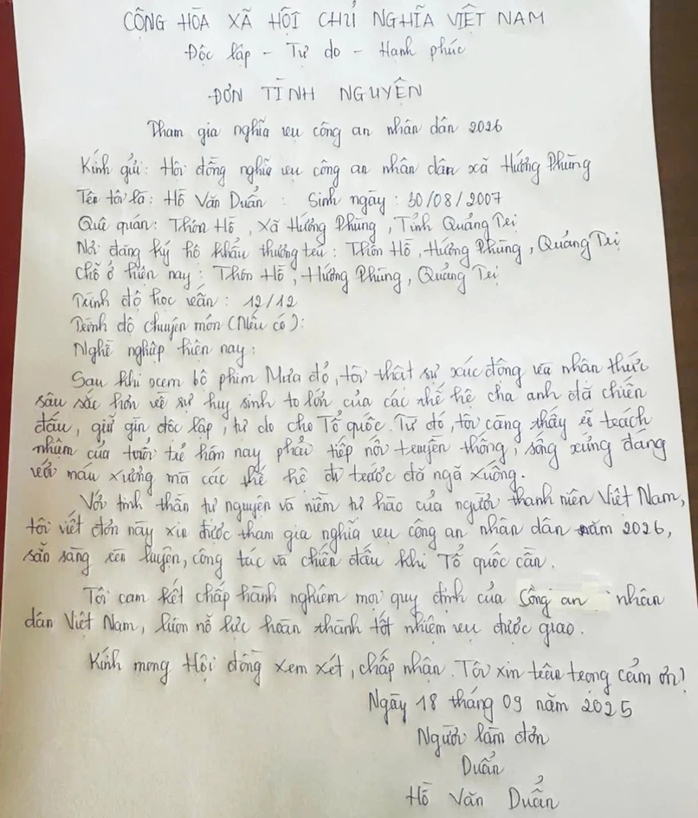 CỘNG HÒA XÃ HỘI CHỦ NGHĨA VIỆT NAM
Độc lập - Tự do - Hạnh phúc
ĐƠN TÌNH NGUYỆN
Tham gia nghĩa vụ công an nhân dân 2026
Kính gửi: Hội đồng nghĩa vụ công an nhân dân xã Hướng Phùng
Tên tôi là: Hồ Văn Duẩn : Sinh ngày: 30/08/2007
Quê quán: Thôn Hồ, Xã Hướng Phùng, Tỉnh Quảng Trị
Nơi đăng ký hộ khẩu thường trú: Thôn Hồ, Hướng Phùng, Quảng Trị
Chỗ ở hiện nay: Thôn Hồ, Hướng Phùng, Quảng Trị
Trình độ học vấn: 12/12
Trình độ chuyên môn (Nếu có):
Nghề nghiệp hiện nay:
Sau khi xem bộ phim Mưa đỏ, tôi thật sự xúc động và nhận thức
sâu sắc hơn về sự hy sinh to lớn của các thế hệ cha anh đã chiến
đấu, giữ gìn độc lập, tự do cho Tổ quốc. Từ đó, tôi càng thấy rõ trách
nhiệm của tuổi trẻ hôm nay phải tiếp nối truyền thống, sống xứng đáng
với máu xương mà các thế hệ đi trước đã ngã xuống.
Với tinh thần tự nguyện và niềm tự hào của người thanh niên Việt Nam,
tôi viết đơn này xin được tham gia nghĩa vụ công an nhân dân năm 2026,
sẵn sàng rèn luyện, công tác và chiến đấu khi Tổ quốc cần.
Tôi cam kết chấp hành nghiêm mọi quy định của Công an nhân
dân Việt Nam, luôn nỗ lực hoàn thành tốt nhiệm vụ được giao.
Kính mong Hội đồng xem xét, chấp nhận. Tôi xin trân trọng cảm ơn!
Ngày 18 tháng 09 năm 2025
Người làm đơn
Duẩn
Hồ Văn Duẩn